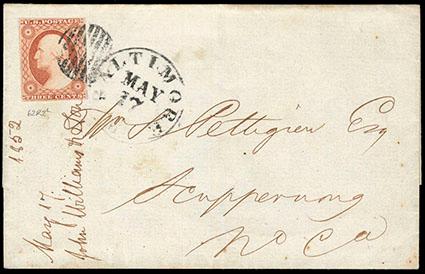 U.S. POSTAGE
THREE CENTS
BALTIMORE
MAY
17
62R2
Wm S. Pettigrew Esq
Scuppernong
No Ca
May 17. 1852
John Williams & Son